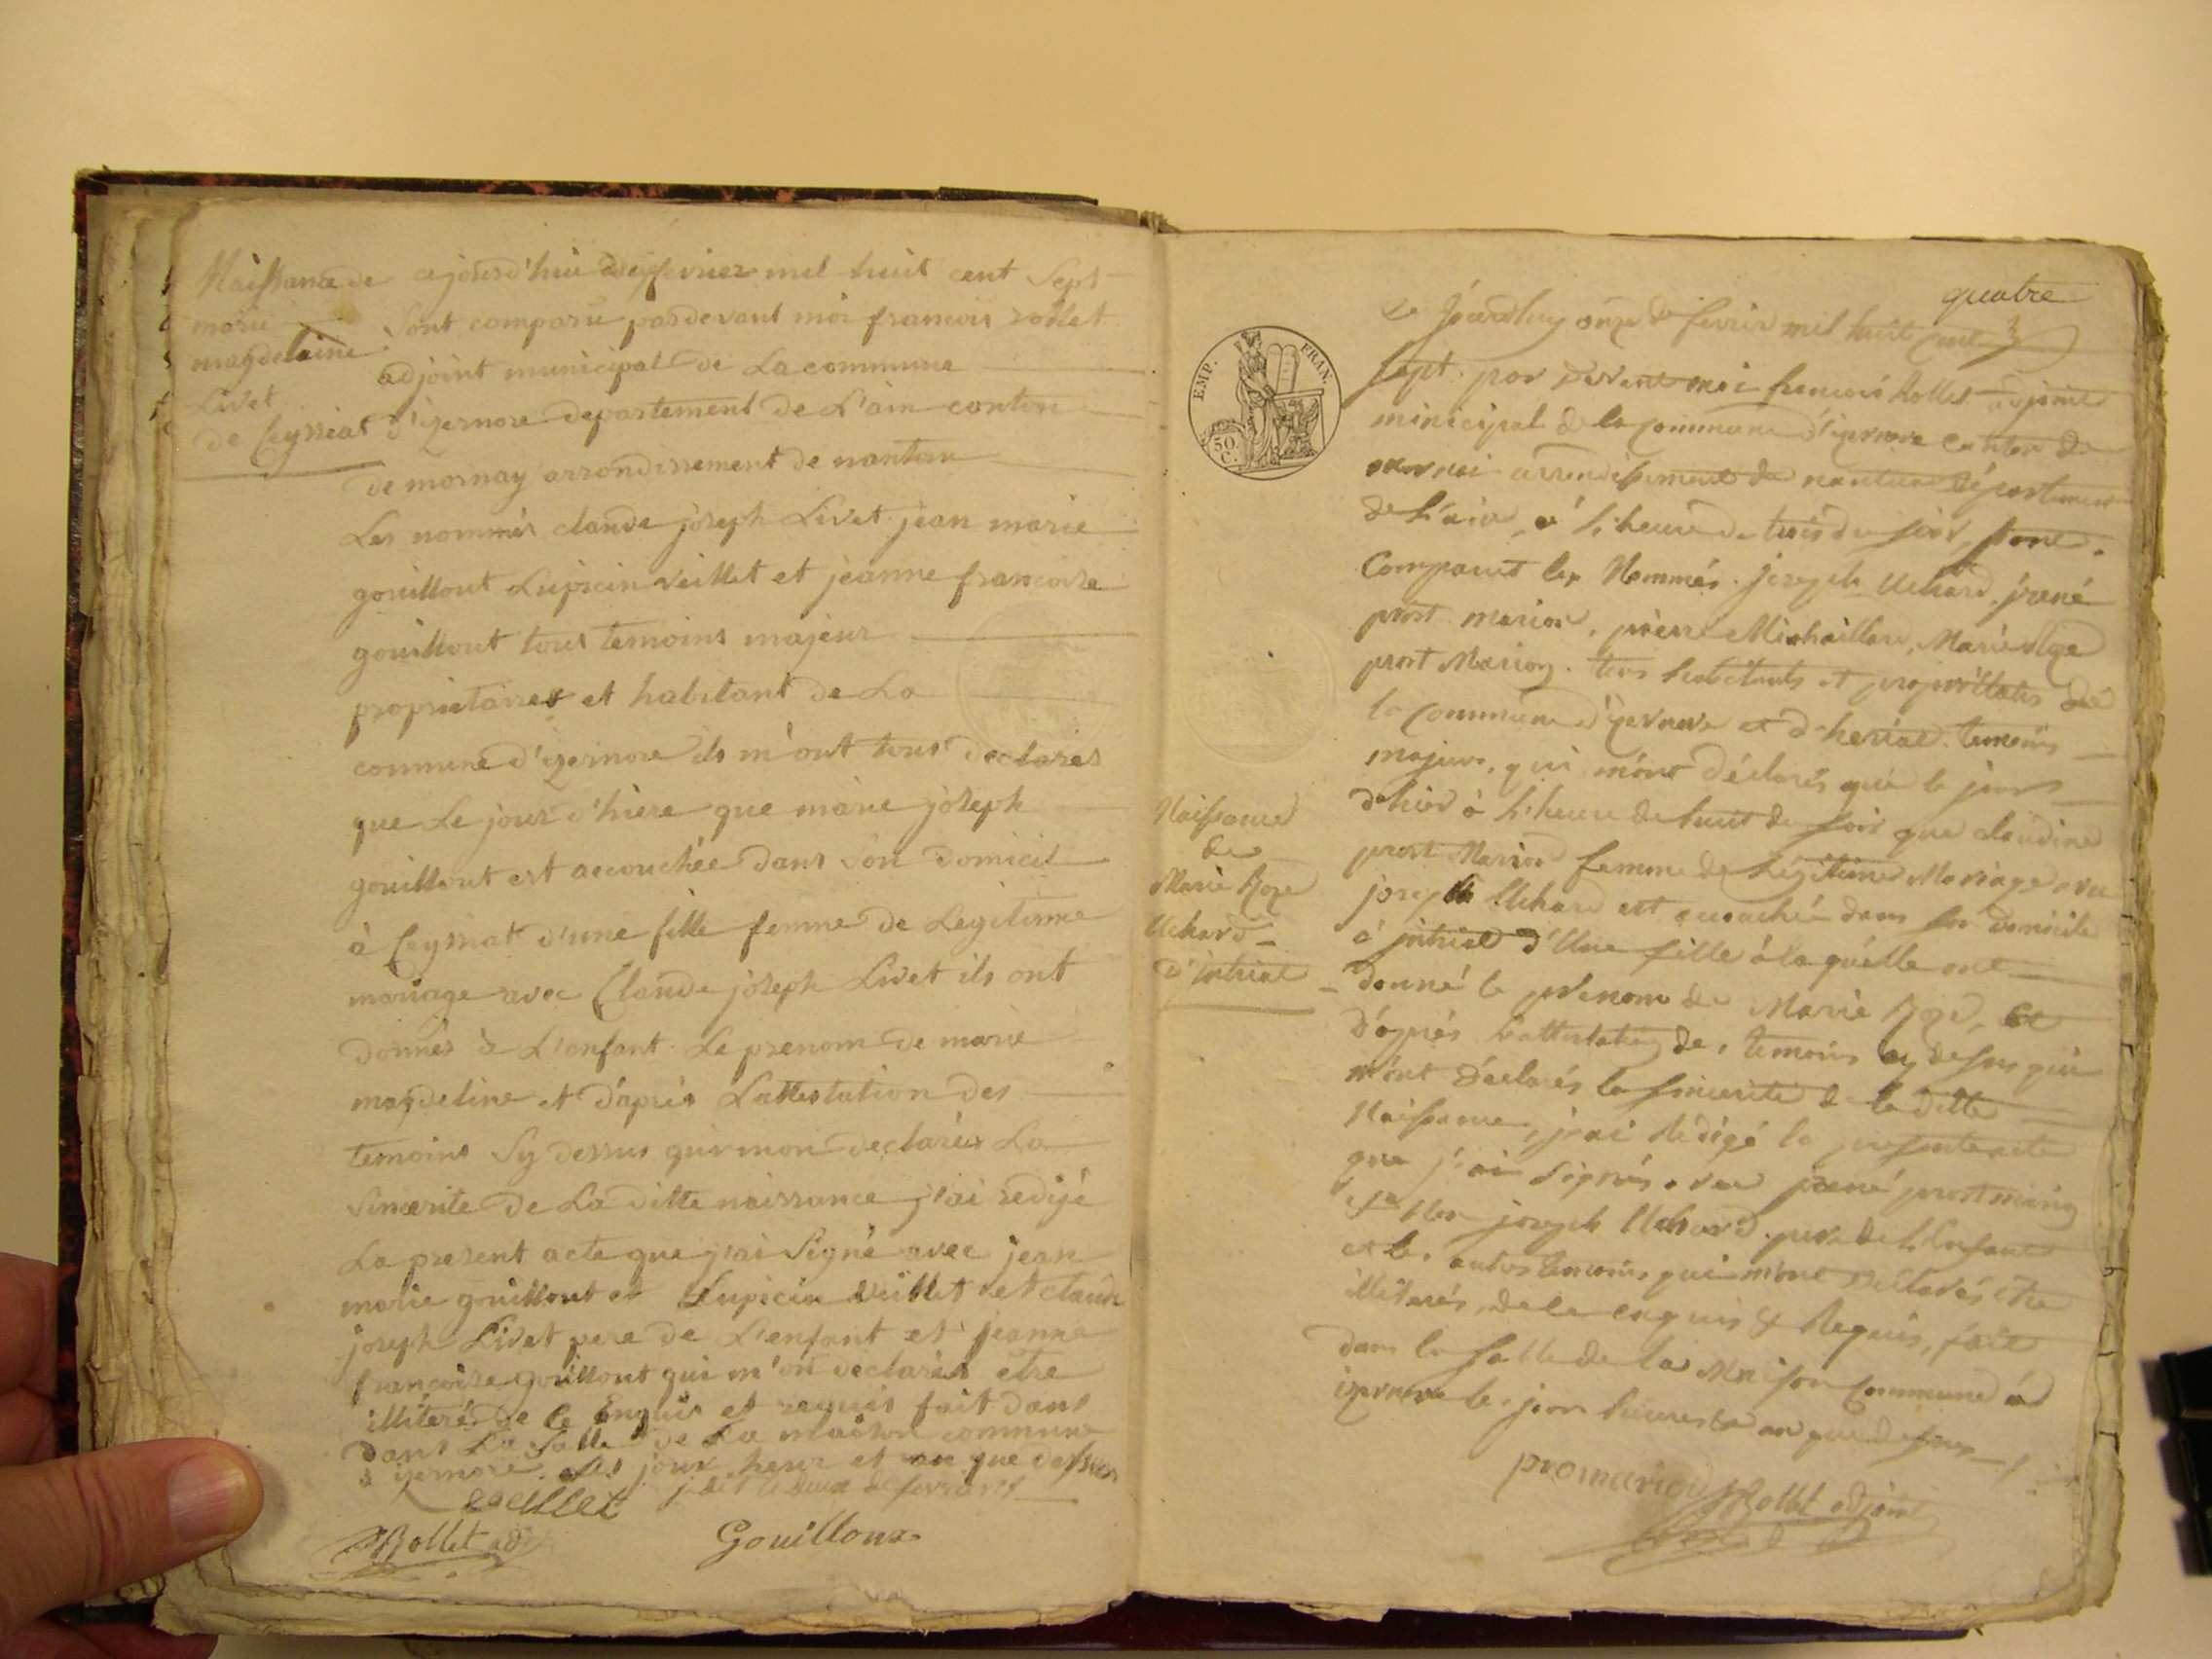 Naissance de
marie
magdelaine
Livet
de Ceyssiat
ce jourd'hui février mil huit cent Sept
Sont comparu pardevant moi francois rollet
adjoint municipal de La commune
d'izernore departement de L'ain conton
de mornay arrondissement de nantua
Les nommés claude joseph Livet jean marie
gouilloux Lupicin veillet et jeanne francoise
gouilloux tous temoins majeur
proprietaires et habitant de La
commune d'izernore ils m'ont tous declarés
que Le jour d'hiere que marie joseph
gouilloux est accouchée dans son domicil
à Ceyssiat d'une fille femme de Legitime
mariage avec Claude joseph Livet ils ont
donnés à L'enfant Le prenom de marie
magdeline et d'après L'attestation des
temoins Sy dessus qui mon declarés La
sincerite de La ditte naissance j'ai redigé
La present acte que j'ai Signé avec jean
marie gouilloux et Lupicin veillet et claude
joseph Livet pere de L'enfant et jeanne
francoise gouilloux qui m'on declarés etre
illiteré de ce Enquis et requis fait dans
dans La Salle de La maison commune
à izernore les jour heur et an que dessus
veillet
Rollet adj
Gouilloux
quatre
EMP. FRAN.
50 C.
Naissance
de
Marie Roze
Uchard
d'intriat
onze de fevrier mil huit cent
sept par devant moi francois Rollet adjoint
municipal de la commune d'izernore canton de
mornai arrondissement de nantua département
de l'ain, a l'heure de trois du soir, sont
Comparut les Nommés joseph Uchard, jrené
prost marion, pierre Michaillard, Marie
prost Marion tous habitants et propriétaires de
la commune d'izernore et d'heriat temoins
majeurs, qui m'ont déclarés que le jours
d'hier à l'heure de huit du soir que claudine
prost Marion femme de Légitime Mariage avec
joseph Uchard est accouchée dans son domicile
a intriat d'Une fille à la quelle ont
donné le prenom de Marie Roze, et
d'après l'attestation des temoins cy dessus qui
m'ont déclarés la sincerité de la ditte
Naissance, j'ai rédigé la presente acte
que j'ai signés avec jrené prost marion
joseph Uchard pere de l'enfant
et les autres temoins qui m'ont déclarés etre
illiterés, de ce enquis & Requis, fait
dans la salle de la Maison Commune à
izernore les jour heures et an que dessus
promarion
Rollet adjoint